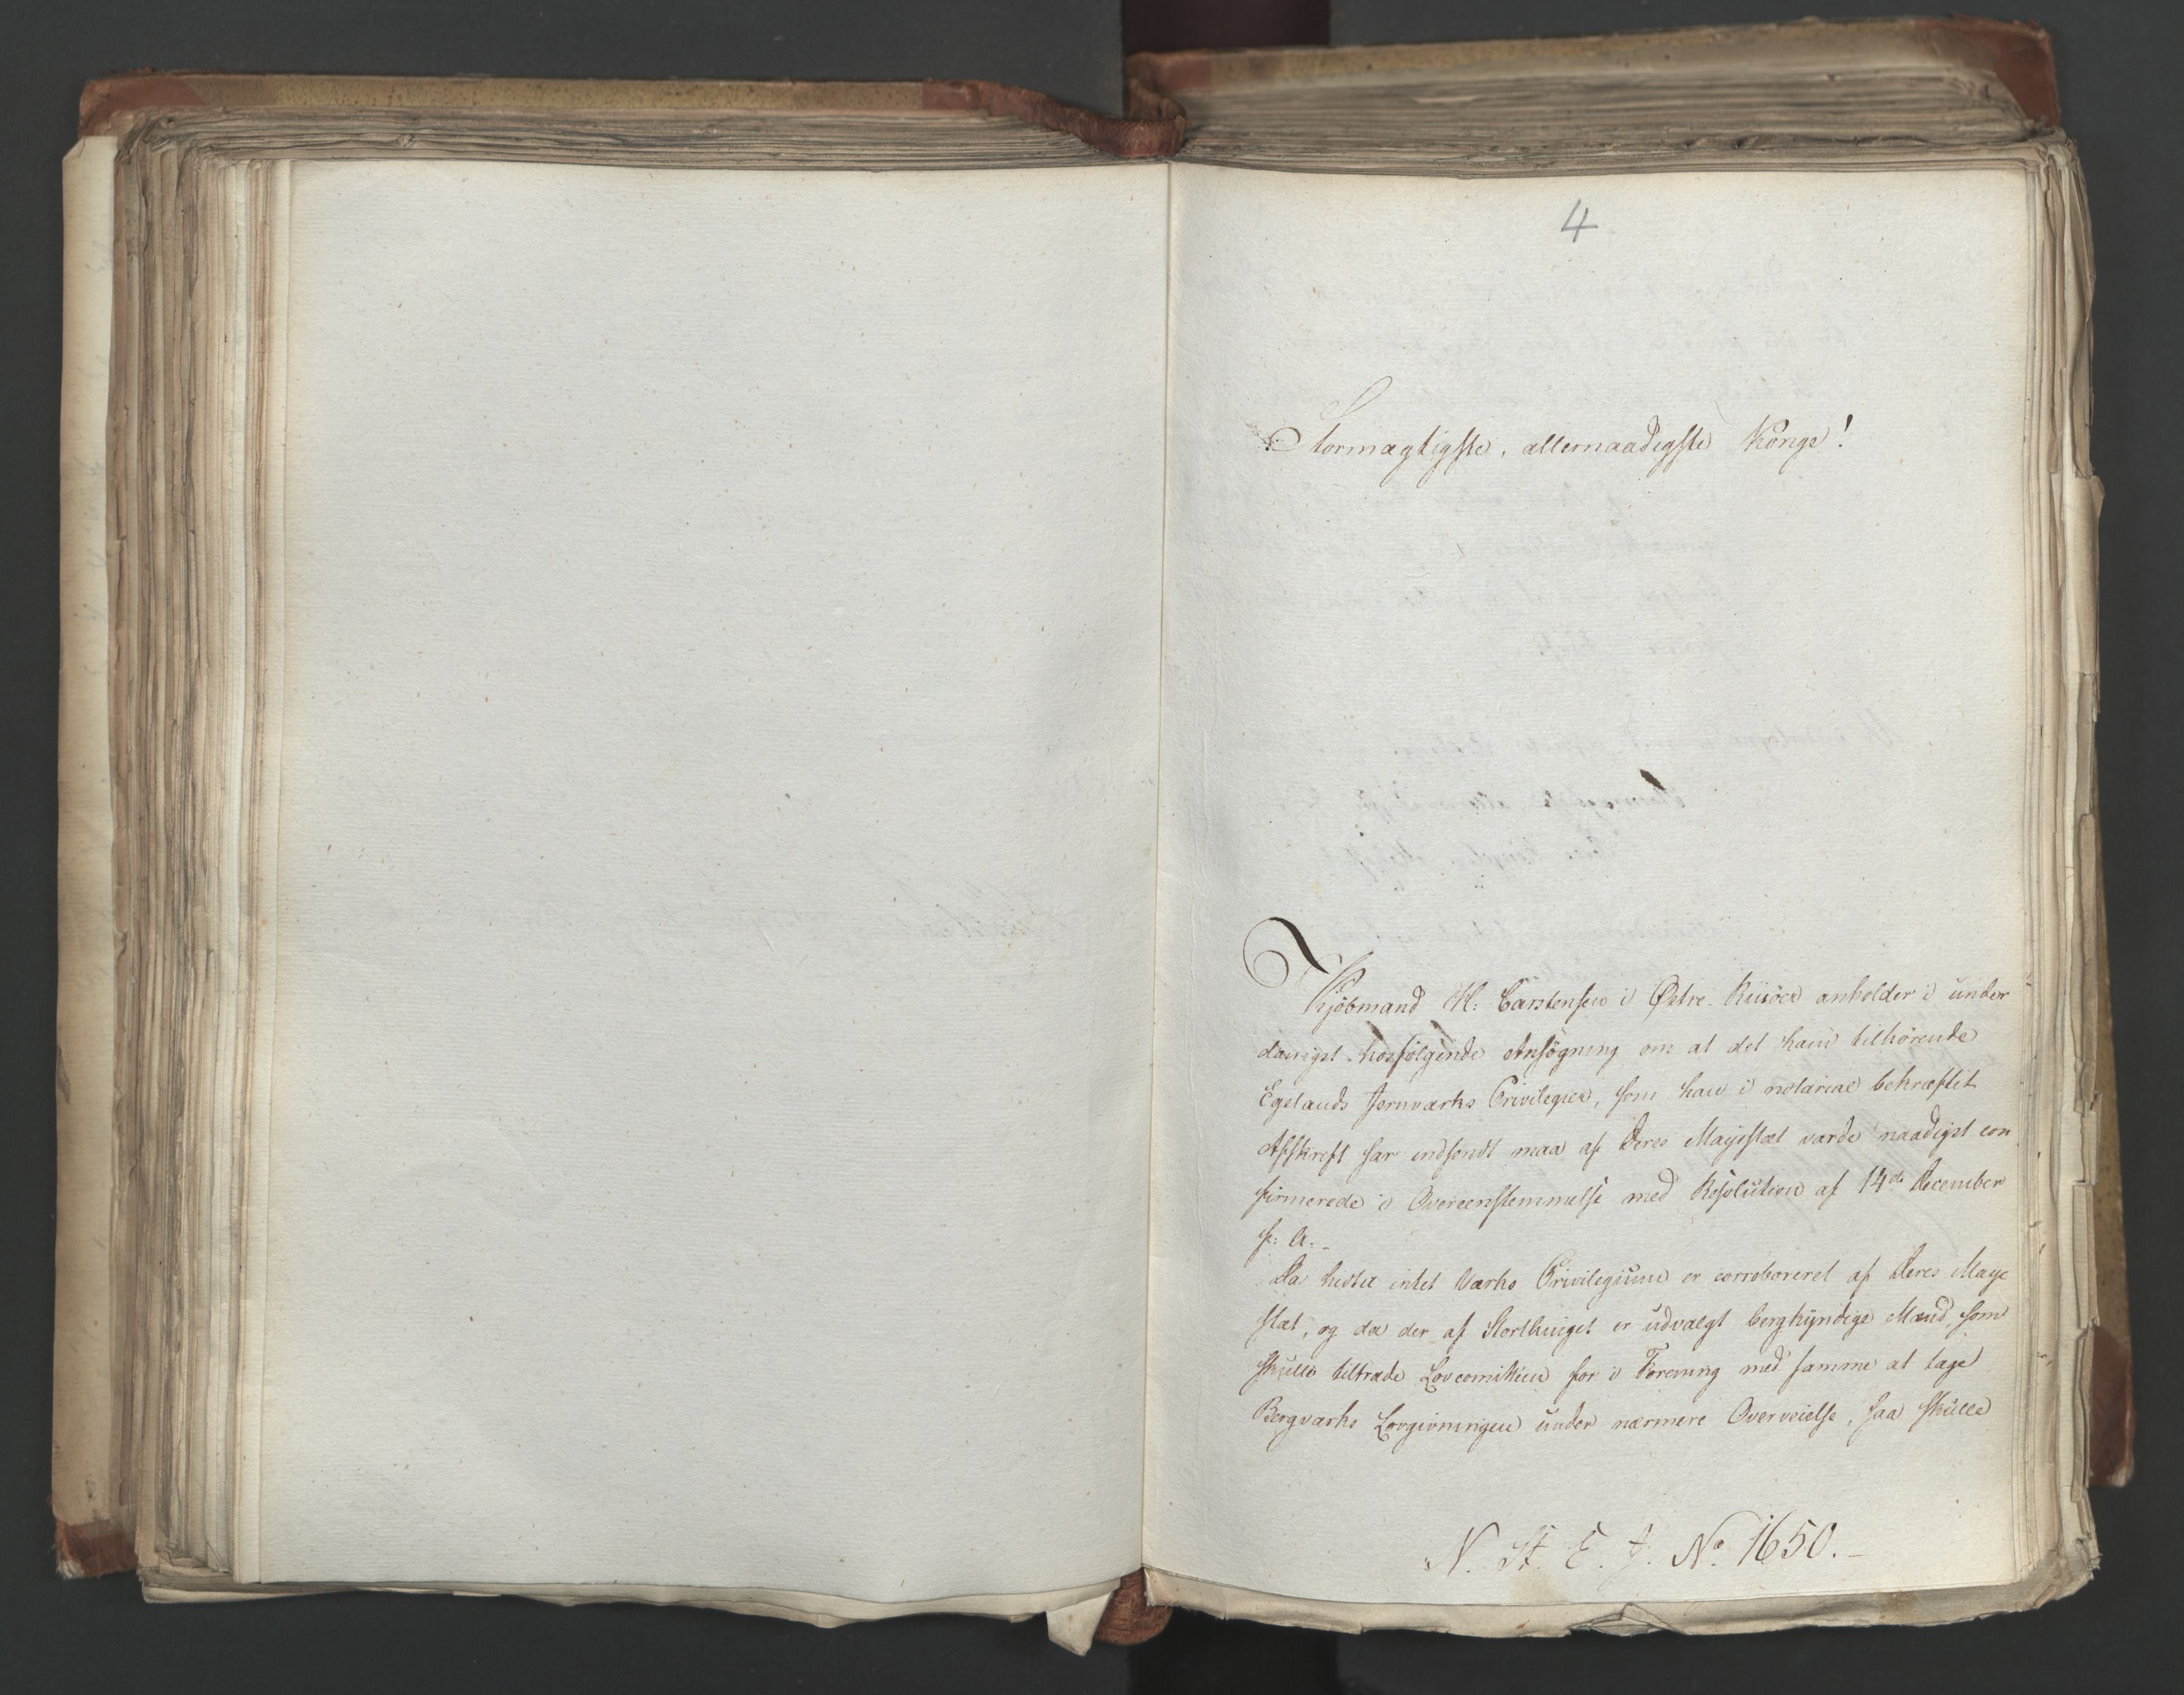 4
Stormægtigste, allernaadigste Konge!
Kjöbmand H: Carstensen i Østre Riisöer anholder i under
danigst hosfølgende Ansögning om at det ham tilhörende
Egelands Jernværks Privilegier, som han i notarial bekræftet
Afskrift har indsendt maa af Deres Majestæt vorde naadigst con
firmerede i Overeensstemmelse med Resolution af 14de December
f: A:-
Da hidtil intet Værks Privilegium er corroboreret af Deres Maje
stæt, og da der af Storthinget er udvalgt bergkyndige Mænd, som
skulle tiltræde Lovcomitteen for i Forening med samme at tage
Bergværks Lovgivningen under nærmere Overveielse, saa skulle
N. St. E. J. No 1650.-